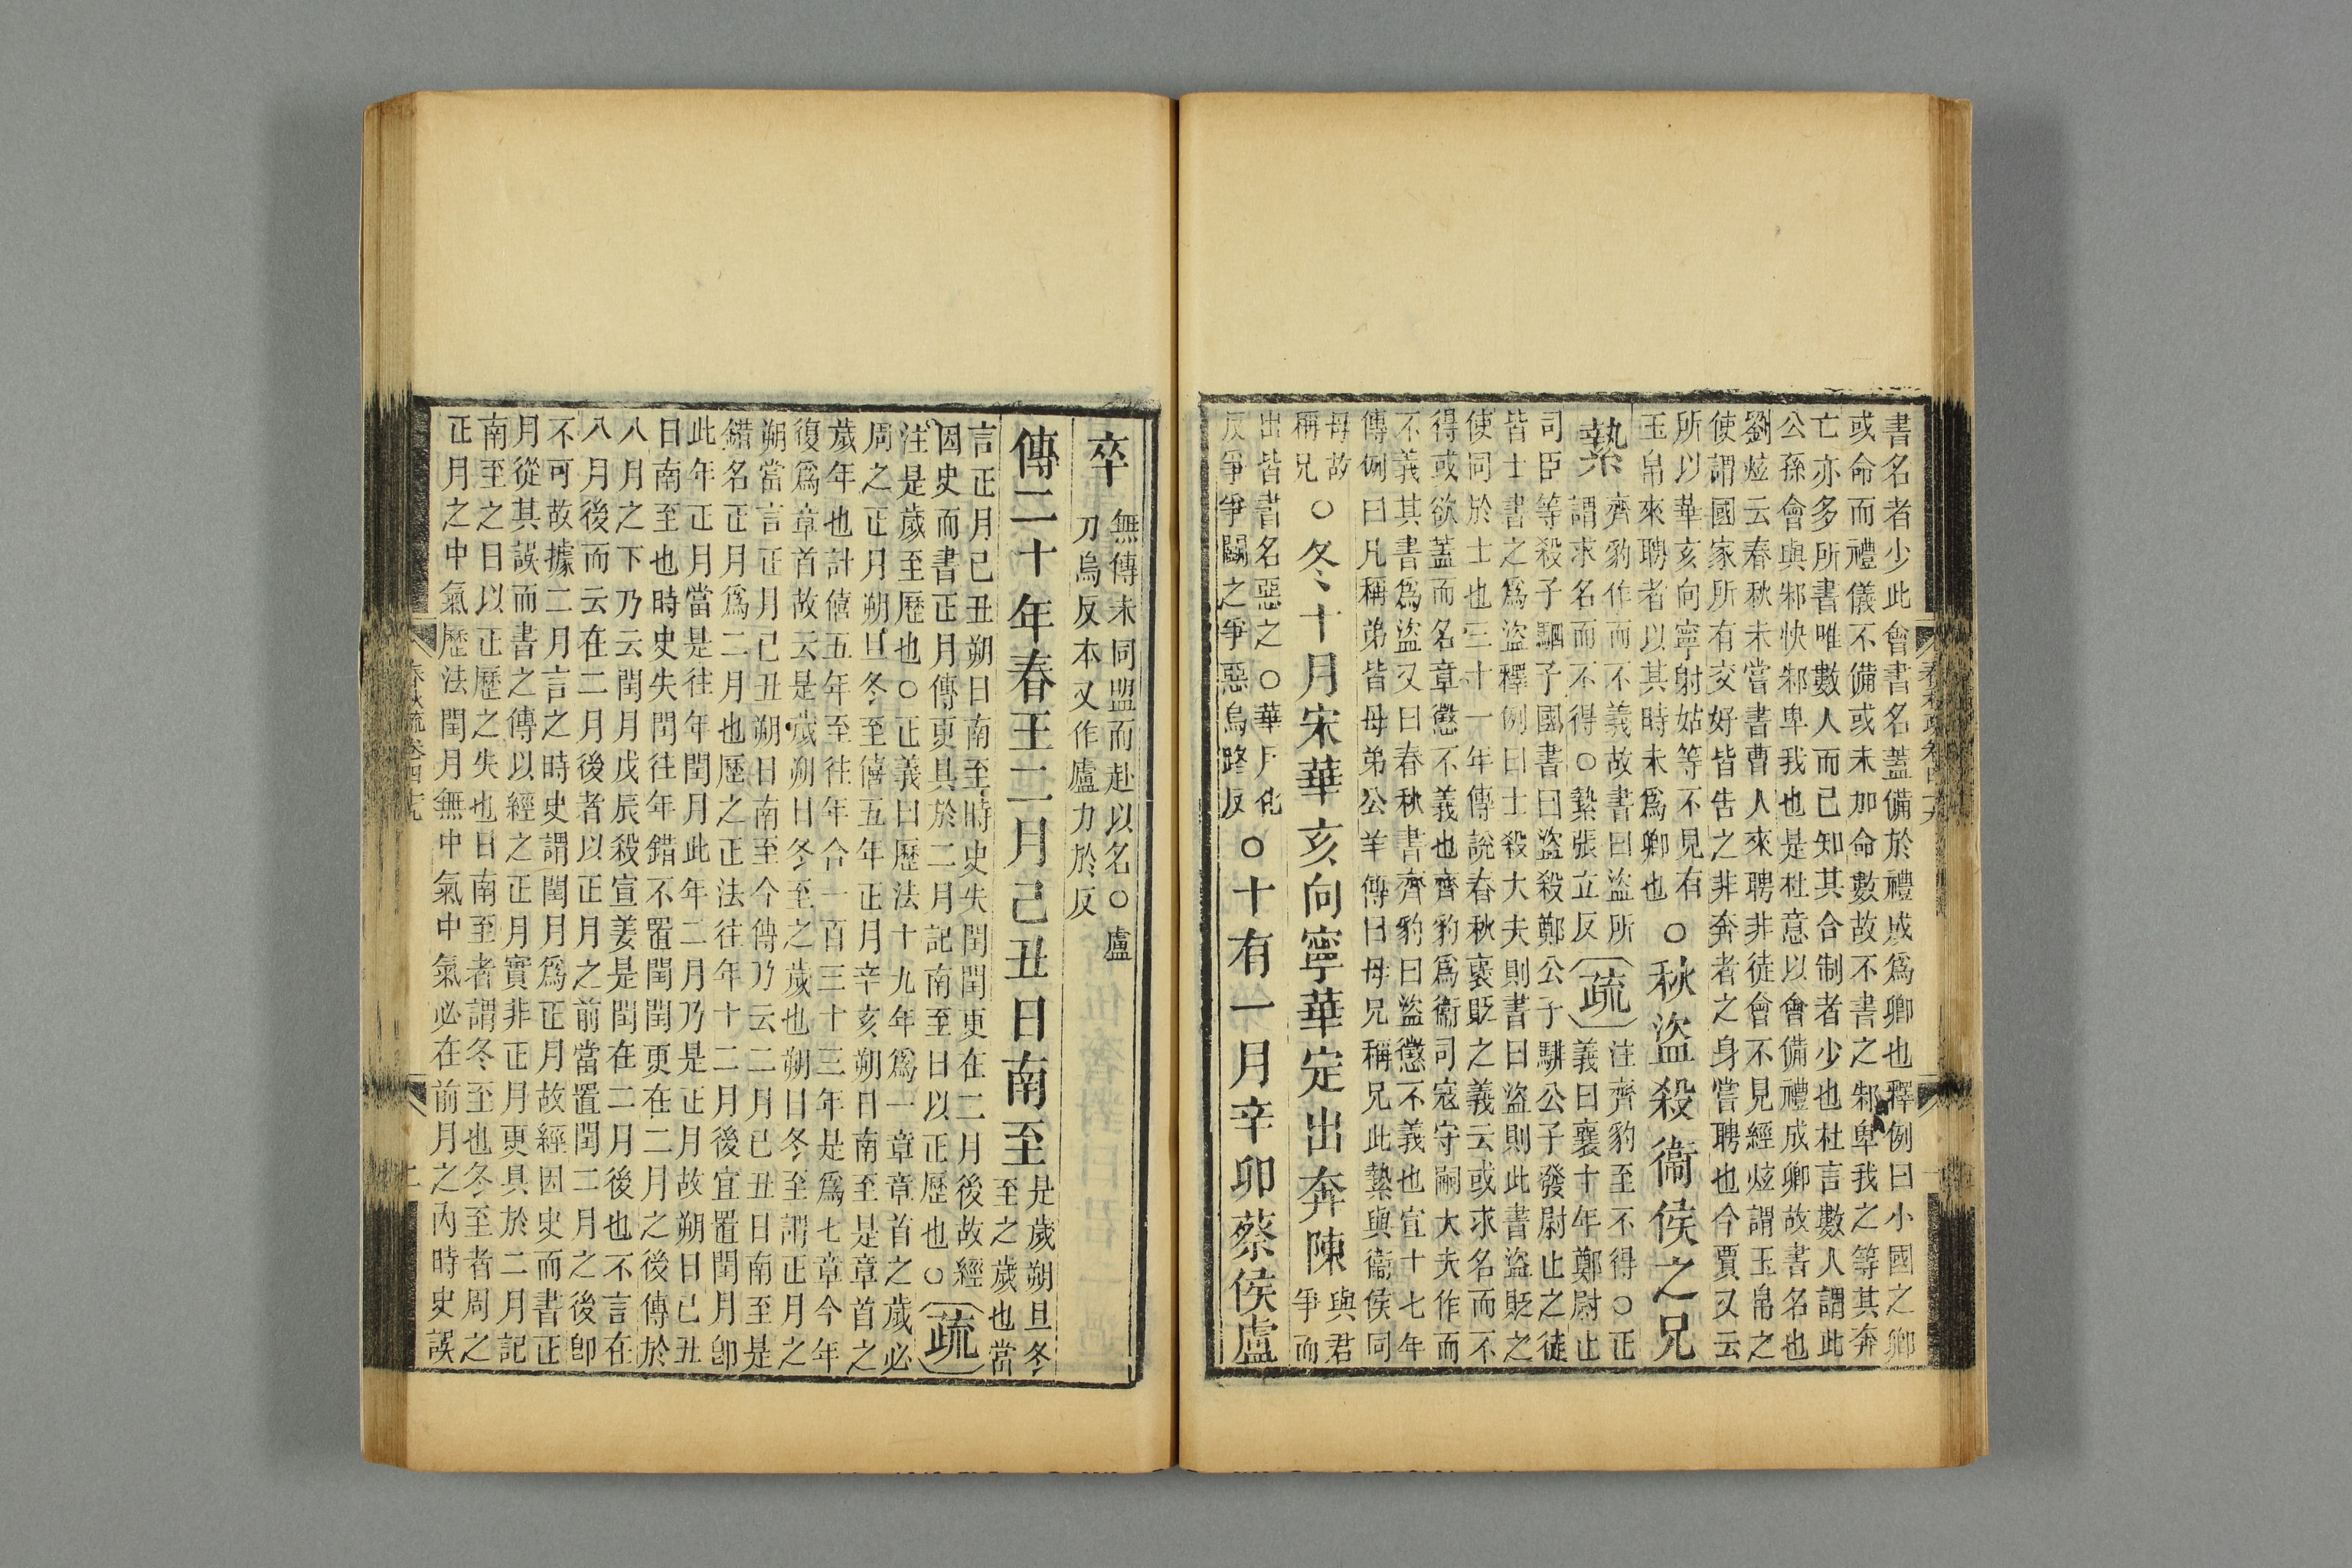 書名者少此會書名蓋備於禮成爲卿也釋例曰小國之卿
或命而禮儀不備或未加命數故不書之邾卑我之等其奔
亡亦多所書唯數人而已知其合制者少也杜言數人謂此
公孫會與邾快邾卑我也是杜意以會備禮成卿故書名也
劉炫云春秋未嘗書曹人來聘非徒會不見經炫謂玉帛之
使謂國家所有交好皆告之非奔者之身嘗聘也今賈又云
所以華亥向寧射姑等不見有
玉帛來聘者以其時未爲卿也
○秋盜殺衞侯之兄
縶
齊豹作而不義故書曰盜所
謂求名而不得○縶張立反
疏
注齊豹至不得○正
義曰襄十年鄭尉止
司臣等殺子駟子國書曰盜殺鄭公子騑公子發尉止之徒
皆士書之爲盜釋例曰士殺大夫則書曰盜則此書盜貶之
使同於士也三十一年傳說春秋襃貶之義云或求名而不
得或欲蓋而名章懲不義也齊豹爲衞司寇守嗣大夫作而
不義其書爲盜又曰春秋書齊豹曰盜懲不義也宣十七年
傳例曰凡稱弟皆母弟公羊傳曰母兄稱兄此縶與衞侯同
母故
稱兄
○冬十月宋華亥向寧華定出奔陳
與君
爭而
出皆書名惡之○華戶化
反爭爭鬬之爭惡烏路反
○十有一月辛卯蔡侯廬
卒
無傳未同盟而赴以名○廬
刀烏反本又作廬力於反
傳二十年春王二月己丑日南至
是歲朔旦冬
至之歲也當
言正月己丑朔日南至時史失閏閏更在二月後故經
因史而書正月傳更具於二月記南至日以正歷也○
疏
注是歲至歷也○正義曰歷法十九年爲一章章首之歲必
周之正月朔旦冬至僖五年正月辛亥朔日南至是章首之
歲年也計僖五年至往年合一百三十三年是爲七章今年
復爲章首故云是歲朔日冬至之歲也朔日冬至謂正月之
朔當言正月己丑朔日南至今傳乃云二月己丑日南至是
錯名正月爲二月也歷之正法往年十二月後宜置閏月卽
此年正月當是往年閏月此年二月乃是正月故朔日己丑
日南至也時史失閏往年錯不置閏閏更在二月之後傳於
八月之下乃云閏月戊辰殺宣姜是閏在二月後也不言在
八月後而云在二月後者以正月之前當置閏二月之後卽
不可故據二月言之時史謂閏月爲正月故經因史而書正
月從其誤而書之傳以經之正月實非正月更具於二月記
南至之日以正歷之失也日南至者謂冬至也冬至者周之
正月之中氣歷法閏月無中氣中氣必在前月之內時史誤